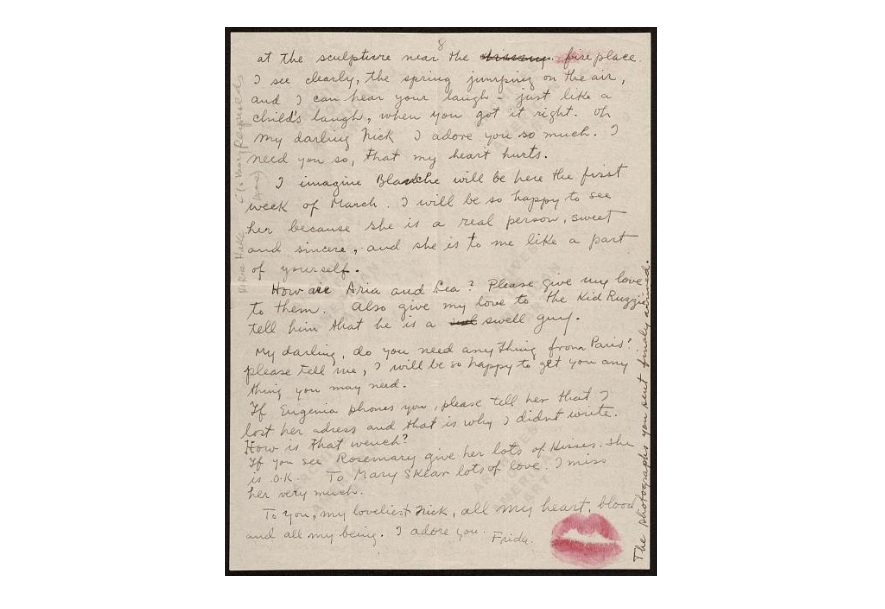 8
at the sculptivre near the fire place.
I see clearly, the spring jumping on the air,
and I can hear your laugh - just like a
child's laugh, when you got it right. Oh
my darling Nick I adore you so much. I
need you so, that my heart hurts.
I imagine Blanche will be here the first
week of March. I will be so happy to see
her because she is a real person, sweet
and sincere, and she is to me like a part
of yourself.
How are Aria and Lea? Please give my love
to them. Also give my love to the Kid Ruzzie,
tell him that he is a swell guy.
My darling, do you need anything from Paris?
please tell me, I will be so happy to get you any
thing you may need.
If Eugenia phones you, please tell her that I
lost her adress and that is why I didnt write.
How is that wench?
If you see Rosemary give her lots of kisses. She
is O.K. To Mary Sklar lots of love. I miss
her very much.
To you, my loveliest Nick, all my heart, blood
and all my being. I adore you.
Frida.
The photographs you sent finaly arrived.
c/o Mary Reynolds